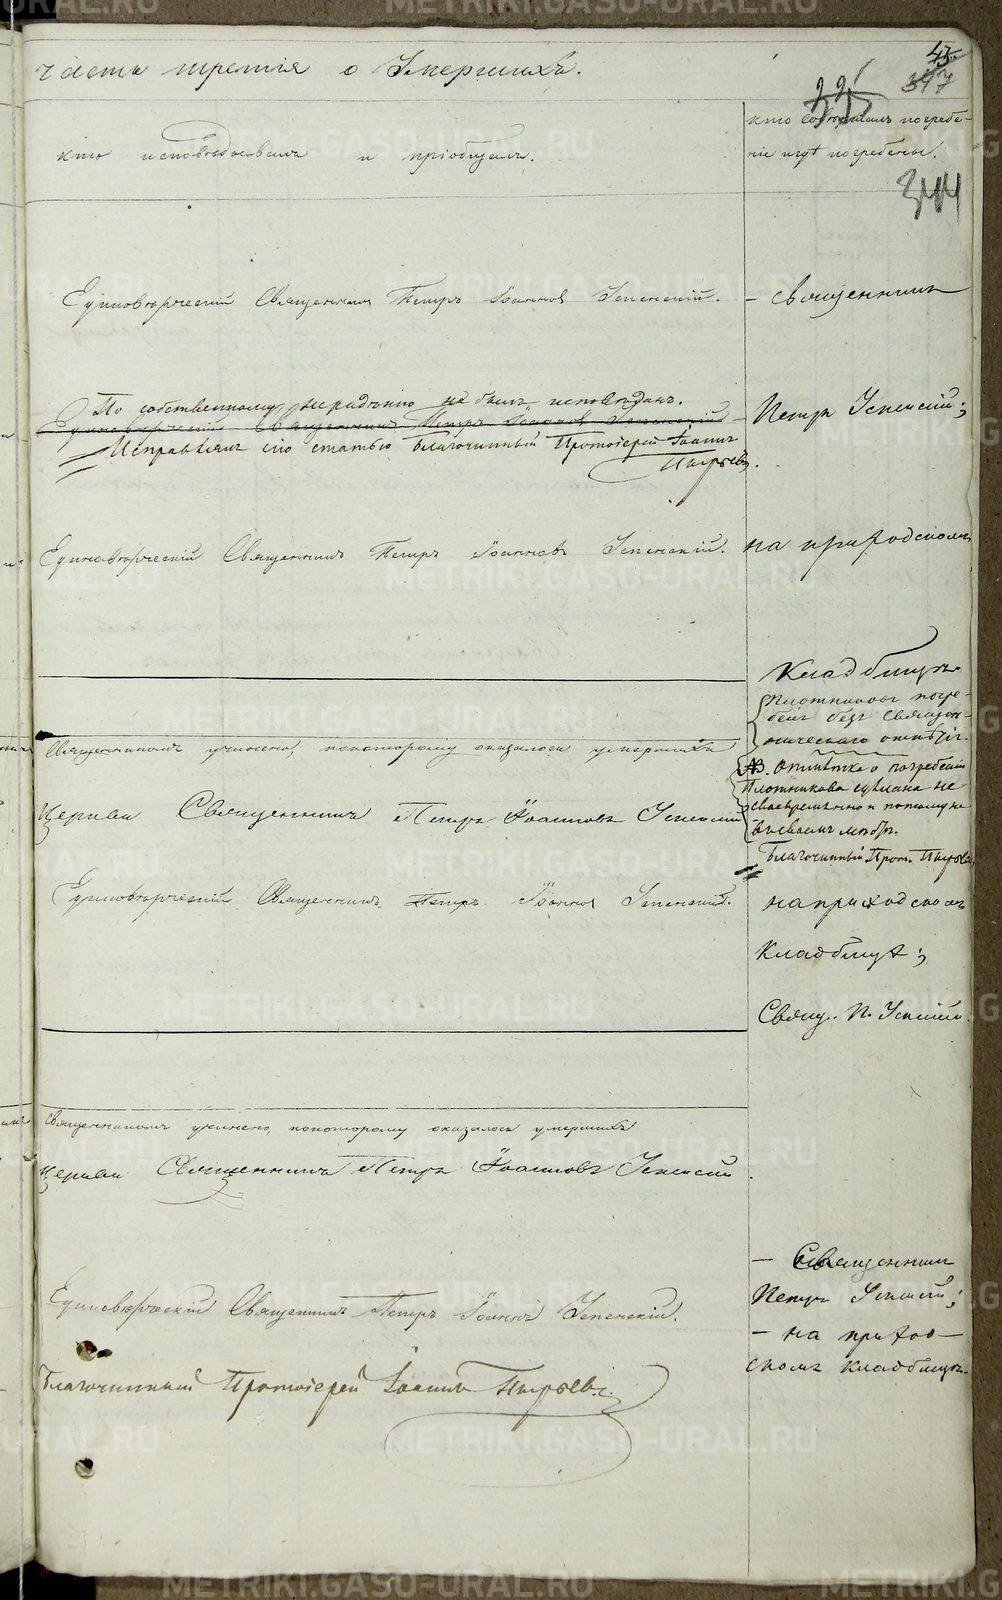 43
347
344
часть третія о Умершихъ.
кто исповѣдывалъ и пріобщалъ.
кто совершалъ погребе-
ніе и гдѣ погребены.
Единовѣрческій Священникъ Петръ Іоанновъ Успенскій.
- Священникъ
По собственному нерадѣнію не былъ исповѣданъ.
Единовѣрческій Священникъ Петръ Іоанновъ Успенскій
Исправилъ сію статью Благочинный Протоіерей Іоаннъ
Пырьевъ.
Петръ Успенскій;
Единовѣрческій Священникъ Петръ Іоанновъ Успенскій.
на приходскомъ
Кладбищѣ.
Плотниковъ погре-
бенъ безъ Священ-
ническаго отпѣтія.
NB. Отмѣтка о погребеніи
Плотникова сдѣлана не
своевременно и потому не
въ своемъ мѣстѣ.
Благочинный Прот. Пырьевъ.
Священникомъ учинено, по которому оказалось умершихъ
Церкви Священникъ Петръ Іоанновъ Успенскій
Единовѣрческій Священникъ Петръ Іоанновъ Успенскій.
на приходскомъ
Кладбищѣ;
Свящ. П. Успенскій.
Священникомъ учинено, по которому оказалось умершихъ
Церкви Священникъ Петръ Іоанновъ Успенскій
Единовѣрческій Священникъ Петръ Іоаннъ Успенскій.
- Священникъ
Петръ Успенскій;
- на приход-
скомъ кладбищѣ.
Благочинный Протоіерей Іоаннъ Пырьевъ.
METRIKI.GASO-URAL.RU